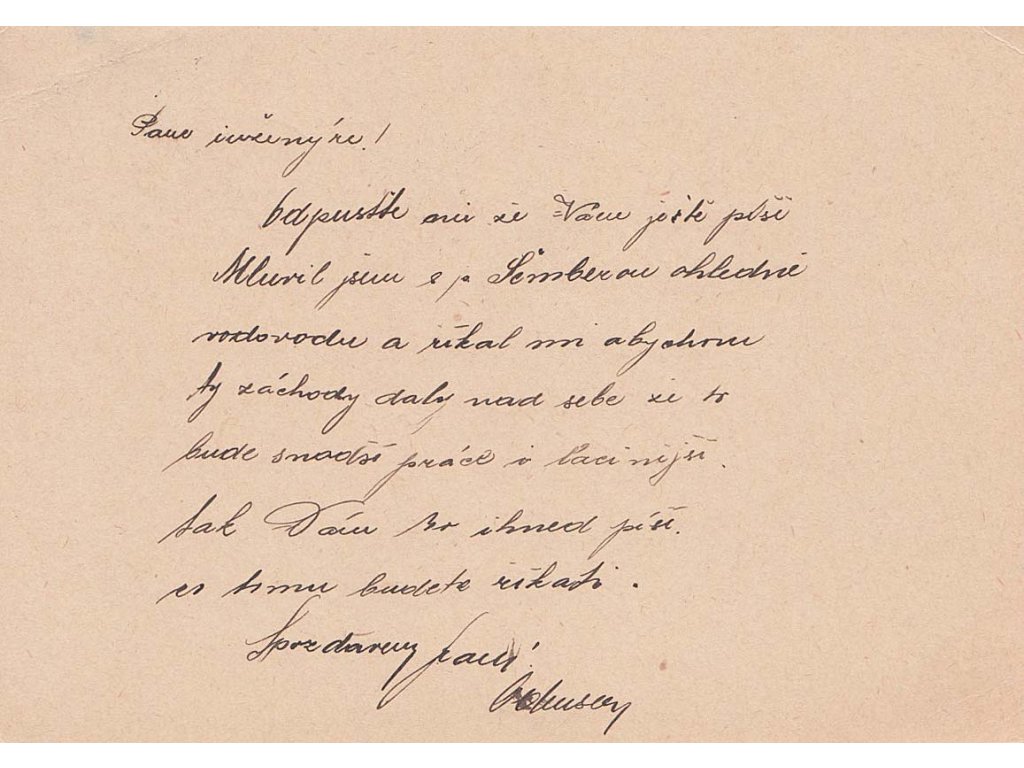 Pane inženýre!
Odpusťte mi že Vám ještě píši
Mluvil jsem s p. Šemberou ohledně
vodovodu a říkal mi abychom
ty záchody daly nad sebe že to
bude snadší práce i lacinější.
tak Vám to ihned píši.
co tomu budete říkati.
S pozdravem